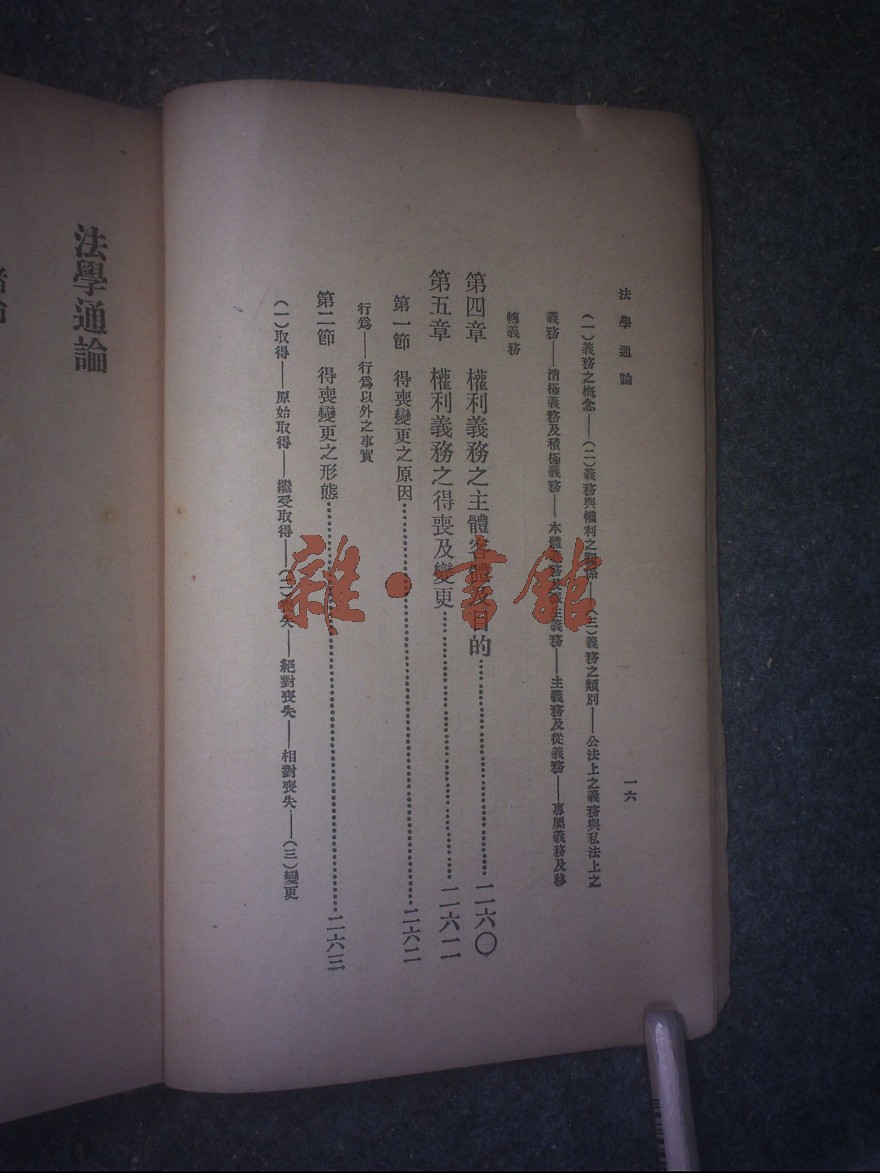 法學通論
一六
（一）義務之概念——（二）義務與權利之關係——（三）義務之類別——公法上之義務與私法上之
義務——消極義務及積極義務——本體義務及派生義務——主義務及從義務——專屬義務及移
轉義務
第四章　權利義務之主體客體及目的…………二六〇
第五章　權利義務之得喪及變更…………二六二
第一節　得喪變更之原因…………二六二
行爲——行爲以外之事實
第二節　得喪變更之形態…………二六三
（一）取得——原始取得——繼受取得——（二）喪失——絕對喪失——相對喪失——（三）變更
法學通論
雜·書館